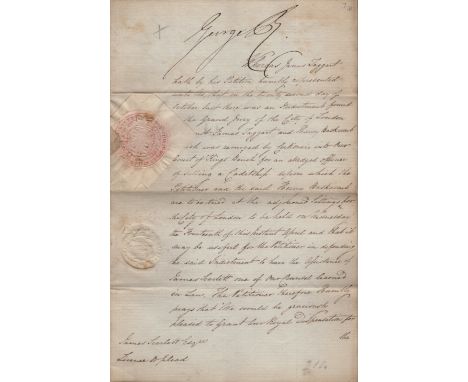 George R.
Whereas James Taggart
hath by his Petition humbly represented
unto Us that on the twenty second day of
October last there was an Indictment found
the Grand Jury of the City of London
James Taggart and Henry
was removed by Certiorari into Our
Court of Kings Bench for an alleged offence
of selling a Cadetship upon which the
Petitioner and the said Henry
are to be tried at the adjourned Sittings for
the City of London to be held on Wednesday
the Fourteenth of this instant April and that it
may be useful for the Petitioner in defending
the said Indictment to have the assistance of
James Scarlett one of Our Counsel learned
in Law. The Petitioner Therefore Humbly
prays that We would be graciously
pleased to Grant Our Royal Dispensation for
the
James Scarlett Esqre
License to plead